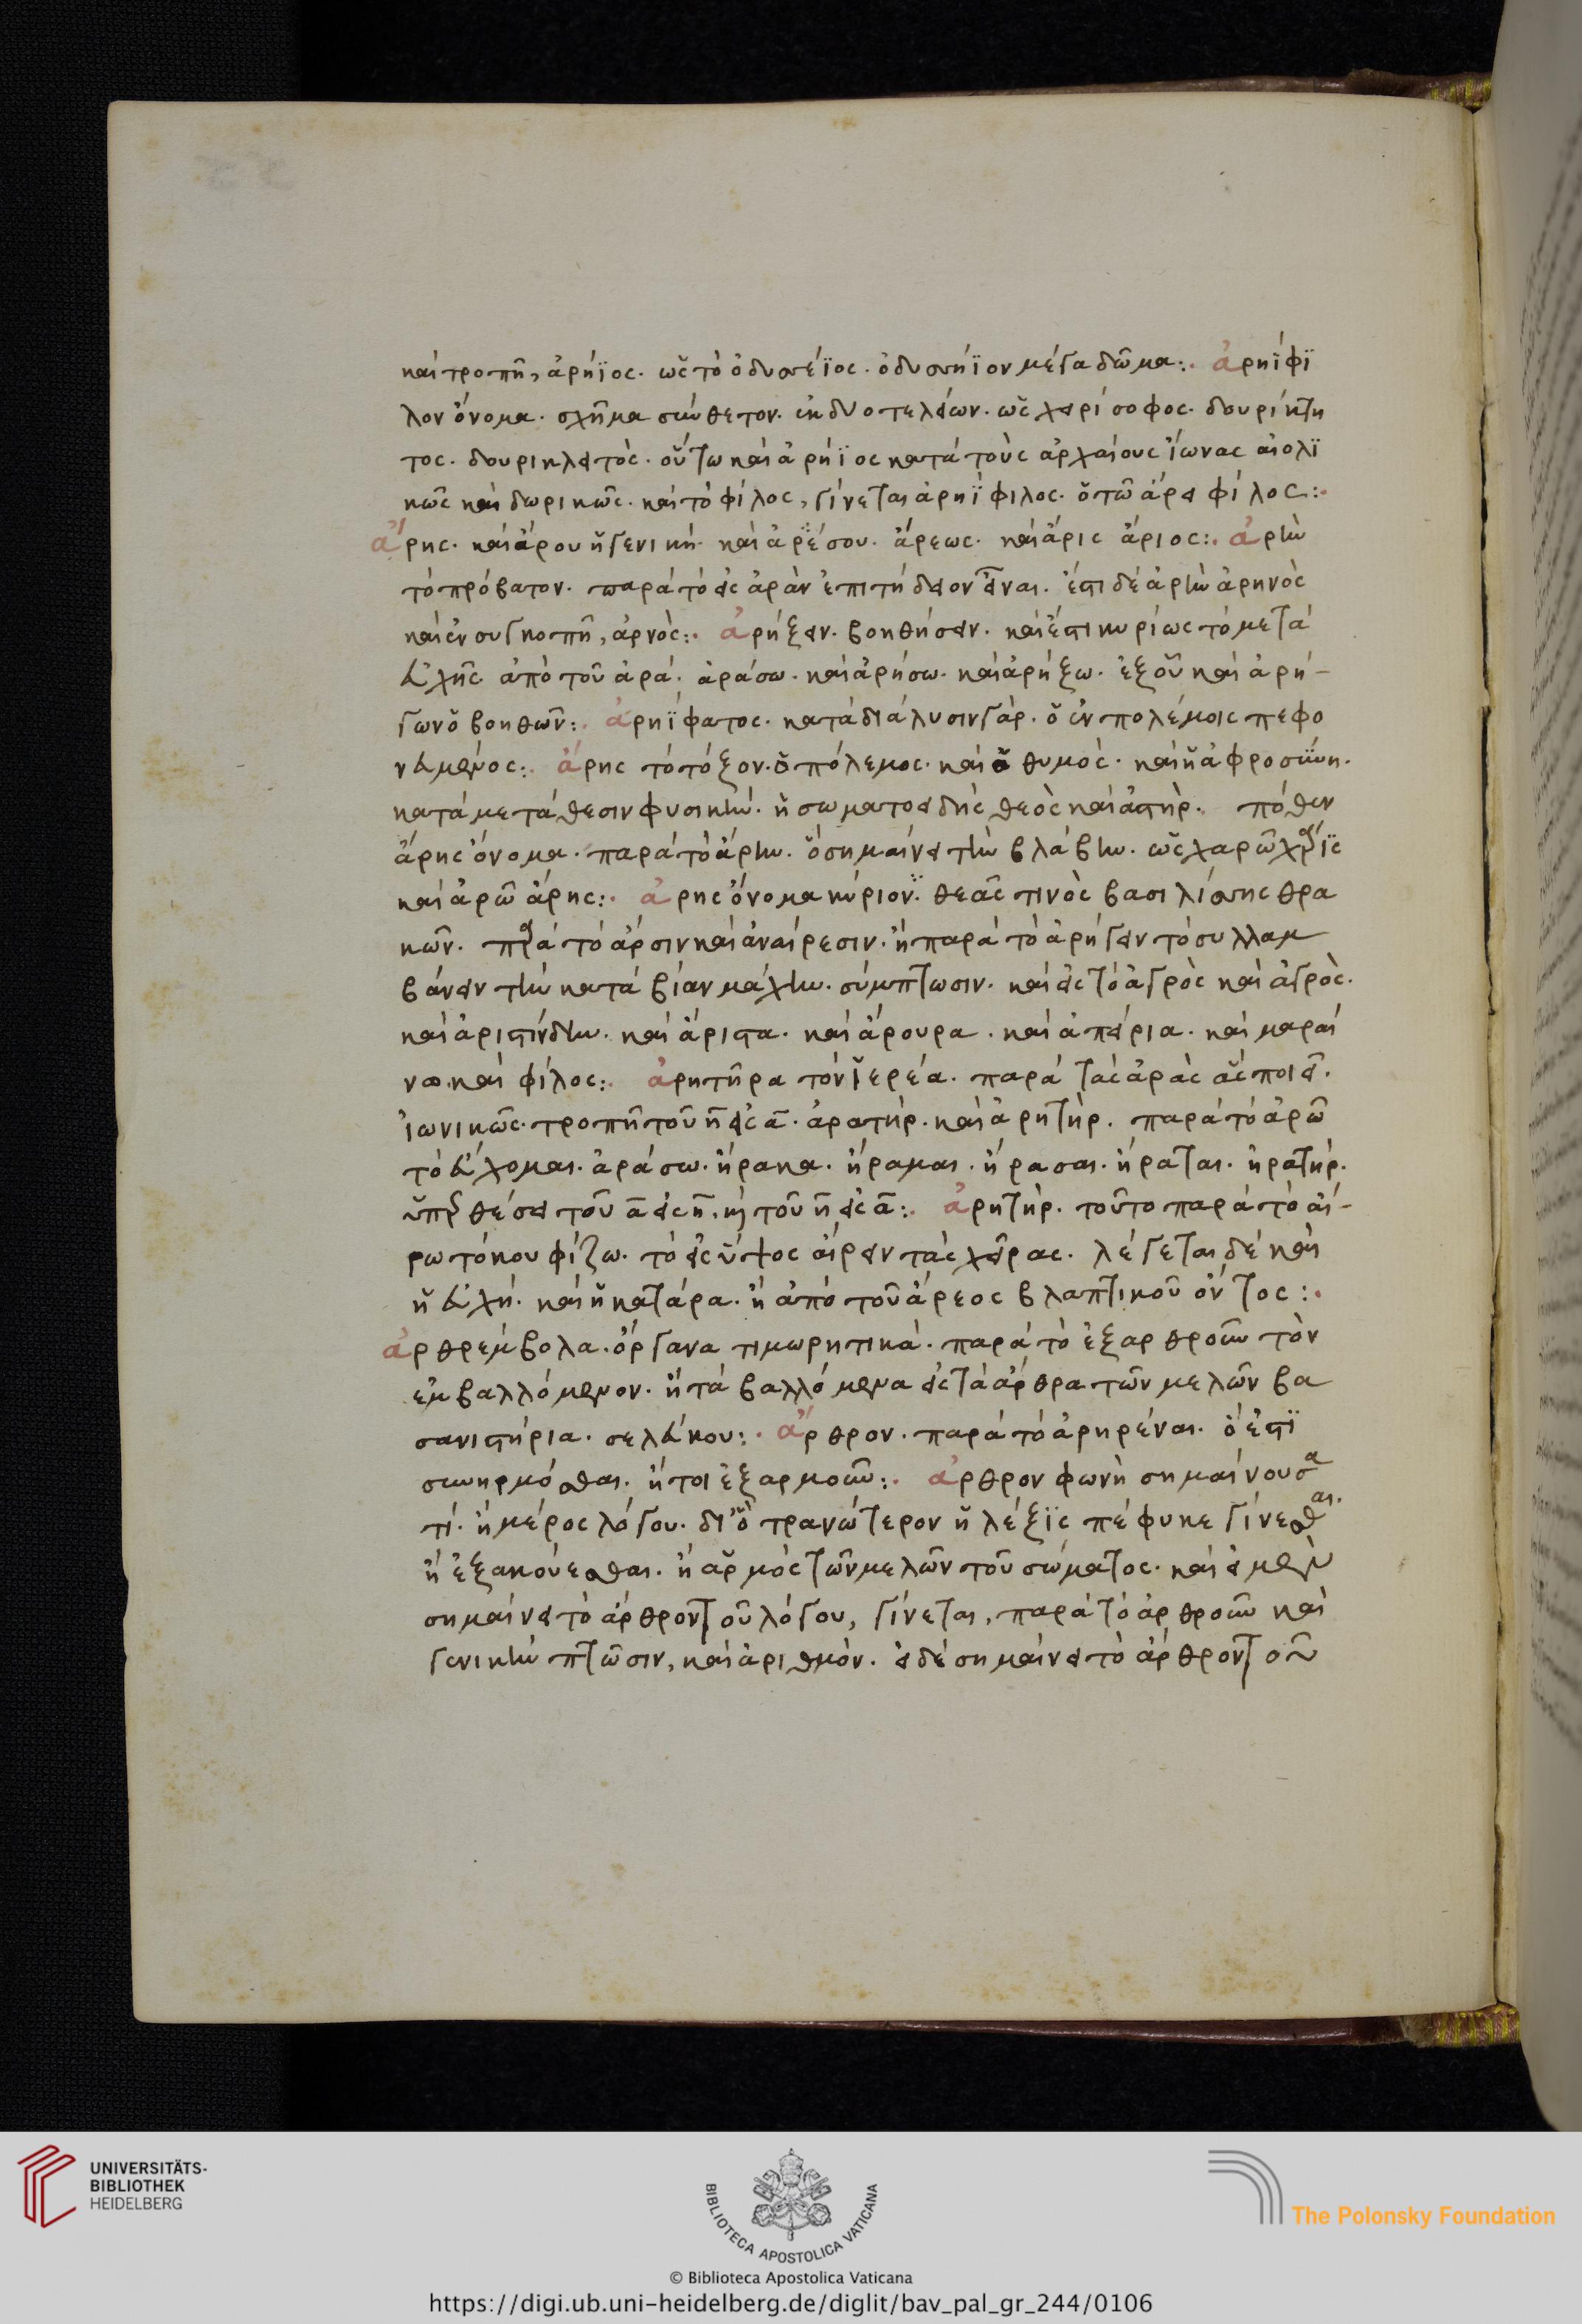 καὶ τροπῆ, ἀρήϊος. ὡς τὸ ὀδυσσέϊος. ὀδυσσήϊον μέγα δῶμα:. ἀρηΐφι
λον ὄνομα. σχῆμα σύνθετον. ἐκ δύο τελείων. ὡς χειρίσοφος. δουρίκτη
τος. δουρικλειτὸς. οὕτω καὶ ἀρήϊος κατὰ τοὺς ἀρχαίους ἴωνας αἰολϊ
κῶς καὶ δωρικῶς. καὶ τὸ φίλος, γίνεται ἀρηΐφιλος. ὁ τῶ ἄρει φίλος:.
ἄρης. καὶ ἄρου ἡ γενικὴ. καὶ ἀρέσου. ἄρεως. καὶ ἄρις ἄριος:. ἀρὴν
τὸ πρόβατον. παρὰ τὸ εἰς ἀρὰν ἐπιτήδειον εἶναι. ἔστι δὲ ἀρὴν ἀρηνὸς
καὶ ἐν συγκοπῆ, ἀρνὸς:. ἀρήξειν. βοηθήσειν. καὶ ἔστι κυρίως τὸ μετὰ
εὐχῆς ἀπὸ τοῦ ἀρά. ἀράσω. καὶ ἀρήσω. καὶ ἀρήξω. ἐξ οὗ καὶ ἀρή-
γων ὁ βοηθῶν:. ἀρηΐφατος. κατὰ διάλυσιν γάρ. ὁ ἐν πολέμοις πεφο
νευμένος:. ἄρης τὸ τόξον. ὁ πόλεμος. καὶ ὁ θυμὸς. καὶ ἡ ἀφροσύνη.
κατὰ μετάθεσιν φυσικὴν. ἢ σωματοειδὴς θεὸς καὶ ἀστὴρ. πόθεν
ἄρης ὄνομα. παρὰ τὸ ἄρην. ὃ σημαίνει τὴν βλάβην. ὡς χαρῶ χάρϊς
καὶ ἀρῶ ἄρης:. ἀρης ὄνομα κύριον. θεᾶς τινὸς βασιλίσσης θρα
κῶν. παρὰ τὸ ἄρσιν καὶ ἀναίρεσιν. ἢ παρὰ τὸ ἀρήγειν τὸ συλλαμ
βάνειν τὴν κατὰ βίαν μάχην. σύμπτωσιν. καὶ εἰς τὸ ἀγρὸς καὶ ἀγρὸς.
καὶ ἀριστίνδην. καὶ ἄριστα. καὶ ἄρουρα. καὶ ἀπείρια. καὶ μαραί
νω. καὶ φίλος:. ἀρητῆρα τὸν ἱερέα. παρὰ τὰς ἀρὰς ἃς ποιεῖ.
ἰωνικῶς. τροπῆ τοῦ η εἰς α. ἀρατὴρ. καὶ ἀρητὴρ. παρὰ τὸ ἀρῶ
τὸ εὔχομαι. ἀράσω. ἤρακα. ἤραμαι. ἤρασαι. ἤραται. ἠρατὴρ.
ὑπερθέσει τοῦ α εἰς η. καὶ τοῦ η εἰς α:. ἀρητὴρ. τοῦτο παρὰ τὸ αἴ-
ρω τὸ κουφίζω. τὸ εἰς ὕψος αἴρειν τὰς χεῖρας. λέγεται δὲ καὶ
ἡ εὐχή. καὶ ἡ κατάρα. ἢ ἀπὸ τοῦ ἄρεος βλαπτικοῦ ὄντος:.
ἀρθρέμβολα. ὄργανα τιμωρητικὰ. παρὰ τὸ ἐξαρθροῦν τὸν
ἐμβαλλόμενον. ἢ τὰ βαλλόμενα εἰς τὰ ἄρθρα τῶν μελῶν βα
σανιστήρια. σελεύκου:. ἄρθρον. παρὰ τὸ ἀρηρέναι. ὅ ἐστϊ
συνηρμόσθαι. ἤτοι ἐξαρμοῦν:. ἀρθρον φωνὴ σημαίνουσα
τί. ἢ μέρος λόγου. δι' ὃ τρανώτερον ἡ λέξϊς πέφυκε γίνεσθαι.
ἢ ἐξακούεσθαι. ἢ ἁρμὸς τῶν μελῶν τοῦ σώματος. καὶ εἰ μὲν
σημαίνει τὸ ἄρθρον τοῦ λόγου, γίνεται, παρὰ τὸ ἀρθροῦν καὶ
γενικὴν πτῶσιν, καὶ ἀριθμόν. εἰ δὲ σημαίνει τὸ ἄρθρον τοῦ
UNIVERSITÄTS-
BIBLIOTHEK
HEIDELBERG
BIBLIOTECA APOSTOLICA VATICANA
The Polonsky Foundation
© Biblioteca Apostolica Vaticana
https://digi.ub.uni-heidelberg.de/diglit/bav_pal_gr_244/0106